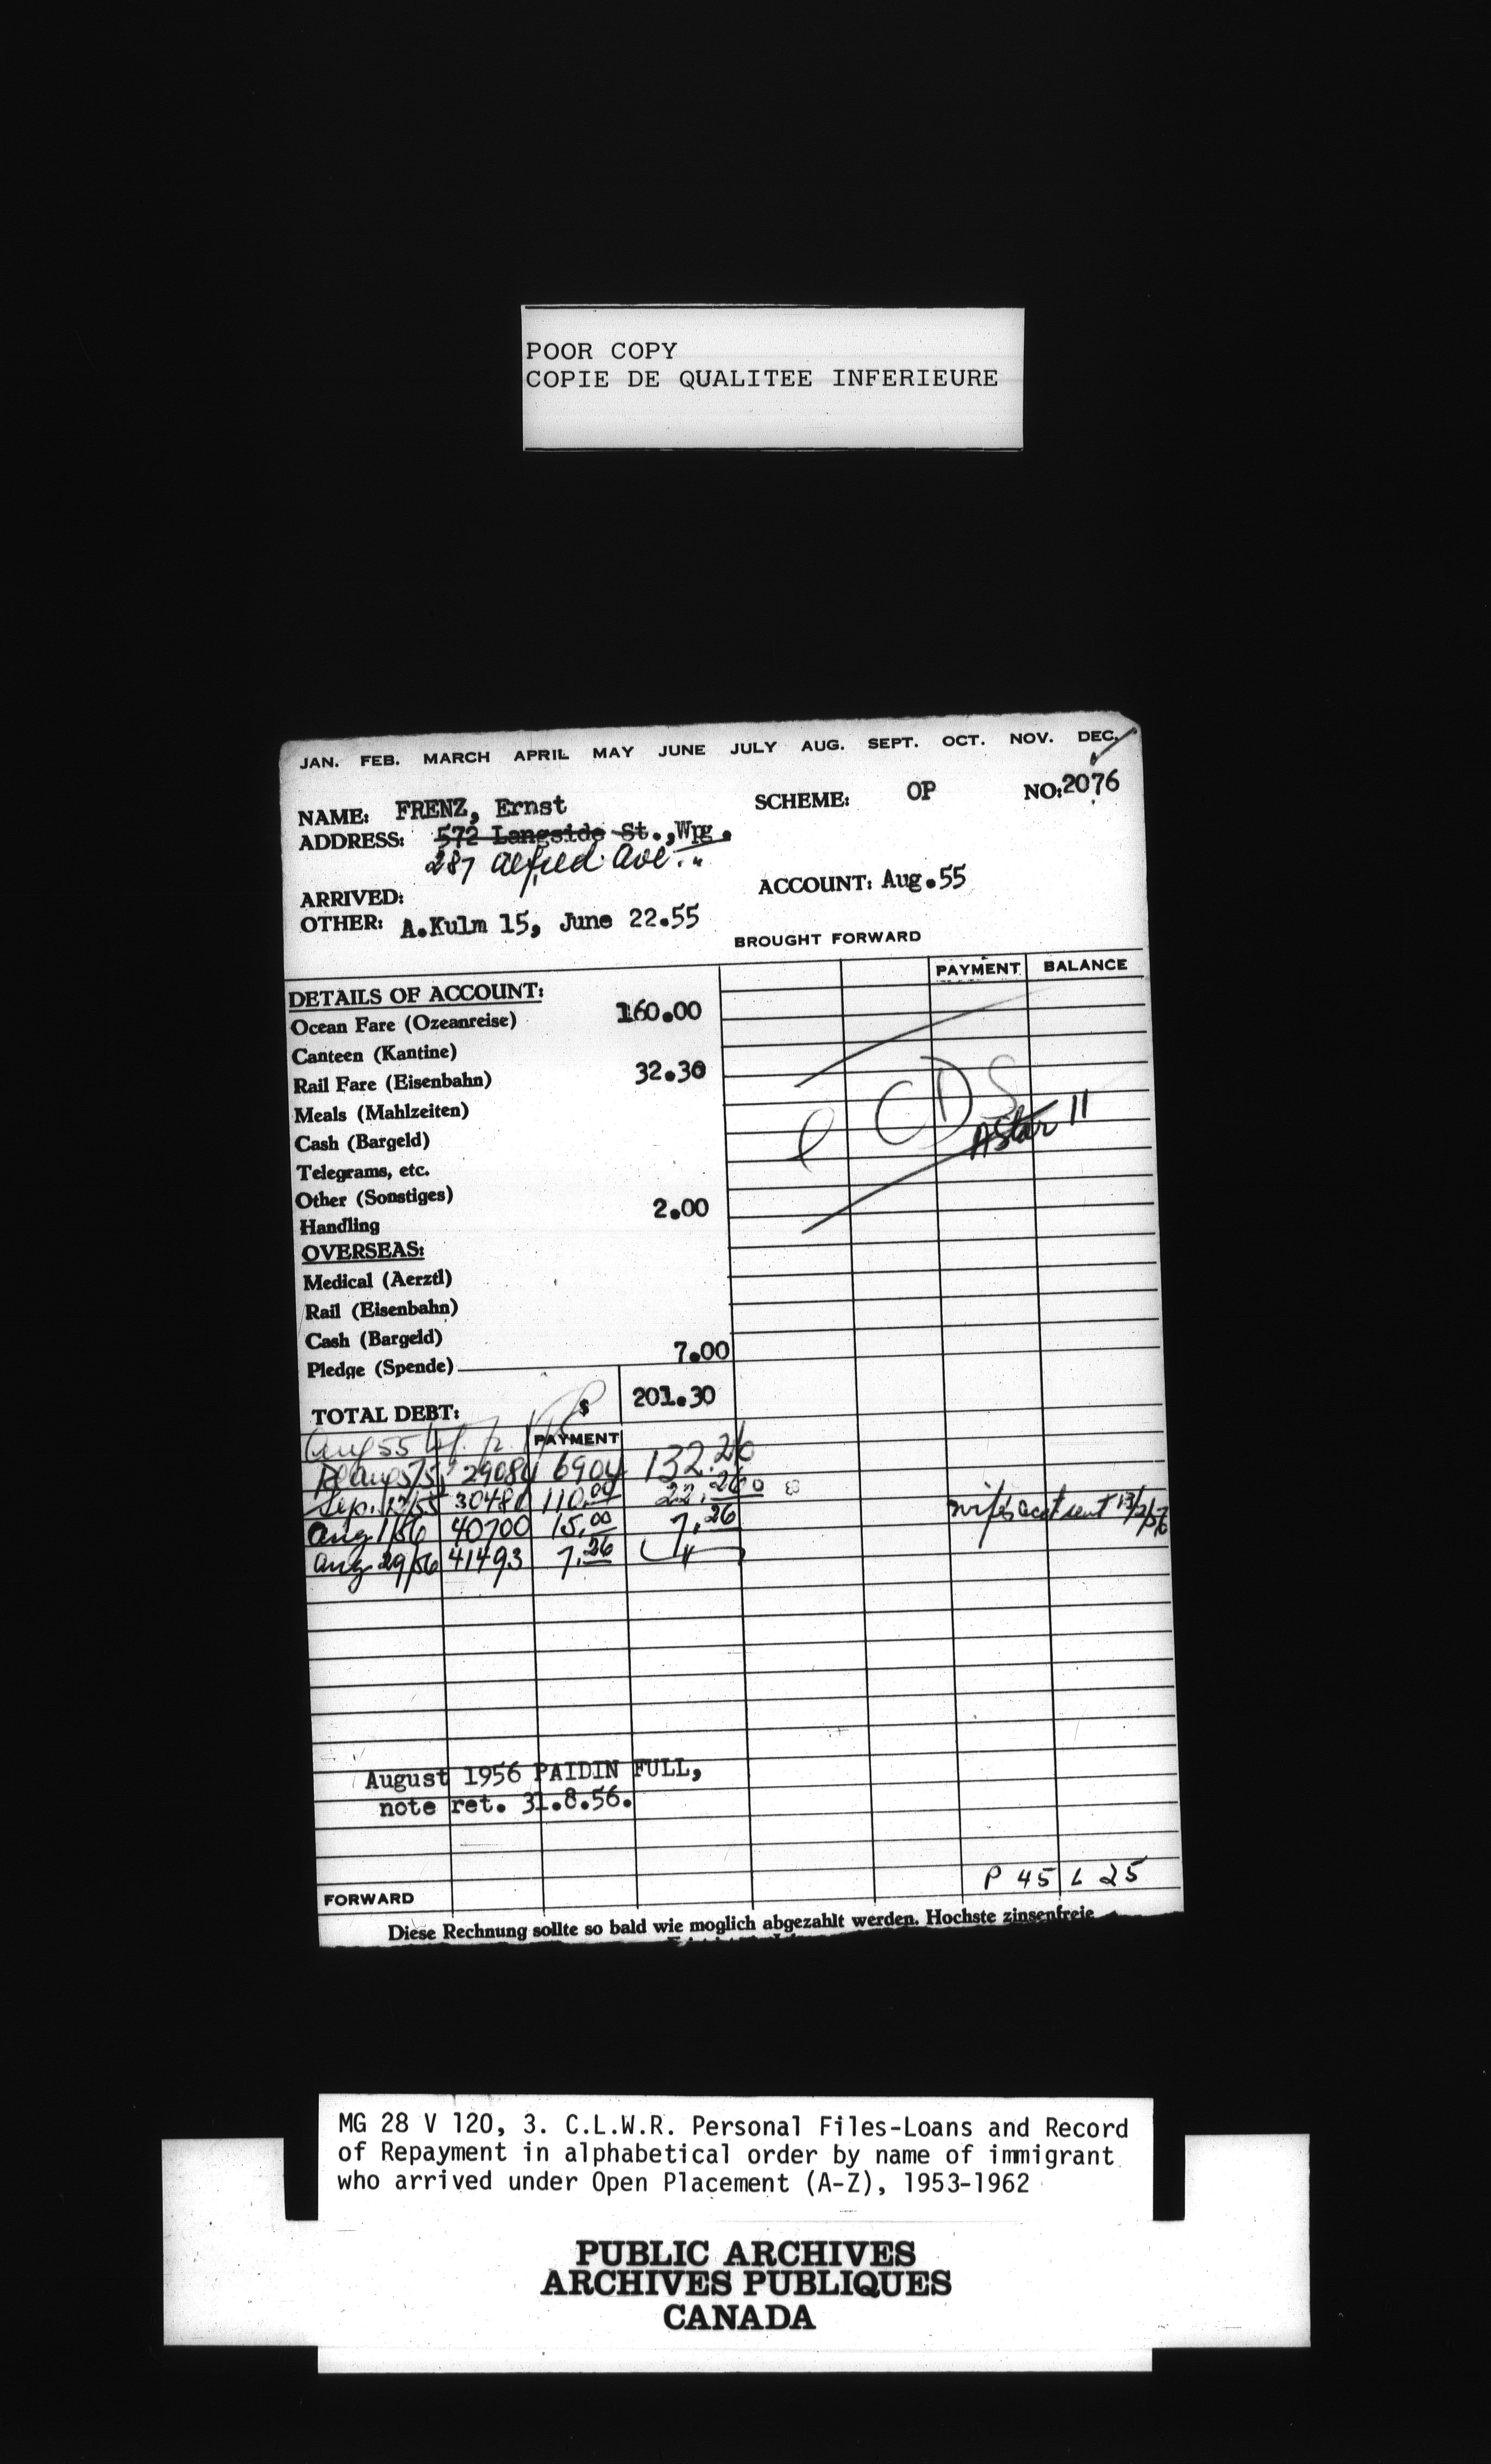 POOR COPY
COPIE DE QUALITEE INFERIEURE
JAN. FEB. MARCH APRIL MAY JUNE JULY AUG. SEPT. OCT. NOV. DEC.
NAME: FRENZ, Ernst SCHEME: OP NO: 2076
ADDRESS: 572 Langside St., Wpg.
287 Alfred Ave. "
ARRIVED: ACCOUNT: Aug. 55
OTHER: A.Kulm 15, June 22.55
BROUGHT FORWARD
PAYMENT BALANCE
DETAILS OF ACCOUNT:
Ocean Fare (Ozeanreise) 160.00
Canteen (Kantine)
Rail Fare (Eisenbahn) 32.30
Meals (Mahlzeiten)
Cash (Bargeld)
Telegrams, etc.
Other (Sonstiges)
Handling 2.00
OVERSEAS:
Medical (Aerztl)
Rail (Eisenbahn)
Cash (Bargeld)
Pledge (Spende) 7.00
TOTAL DEBT: $ 201.30
CDS
A Star 11
Aug 55
PAYMENT
Aug 5/55 29084 6904 132.26
Sep. 12/55 30480 110.00 22.26
Aug 1/56 40700 15.00 7.26
wife's acct sent 13/2/56
Aug 29/56 41493 7.26
August 1956 PAIDIN FULL,
note ret. 31.8.56.
P 45 L 25
FORWARD
Diese Rechnung sollte so bald wie moglich abgezahlt werden. Hochste zinsenfreie
MG 28 V 120, 3. C.L.W.R. Personal Files-Loans and Record
of Repayment in alphabetical order by name of immigrant
who arrived under Open Placement (A-Z), 1953-1962
PUBLIC ARCHIVES
ARCHIVES PUBLIQUES
CANADA